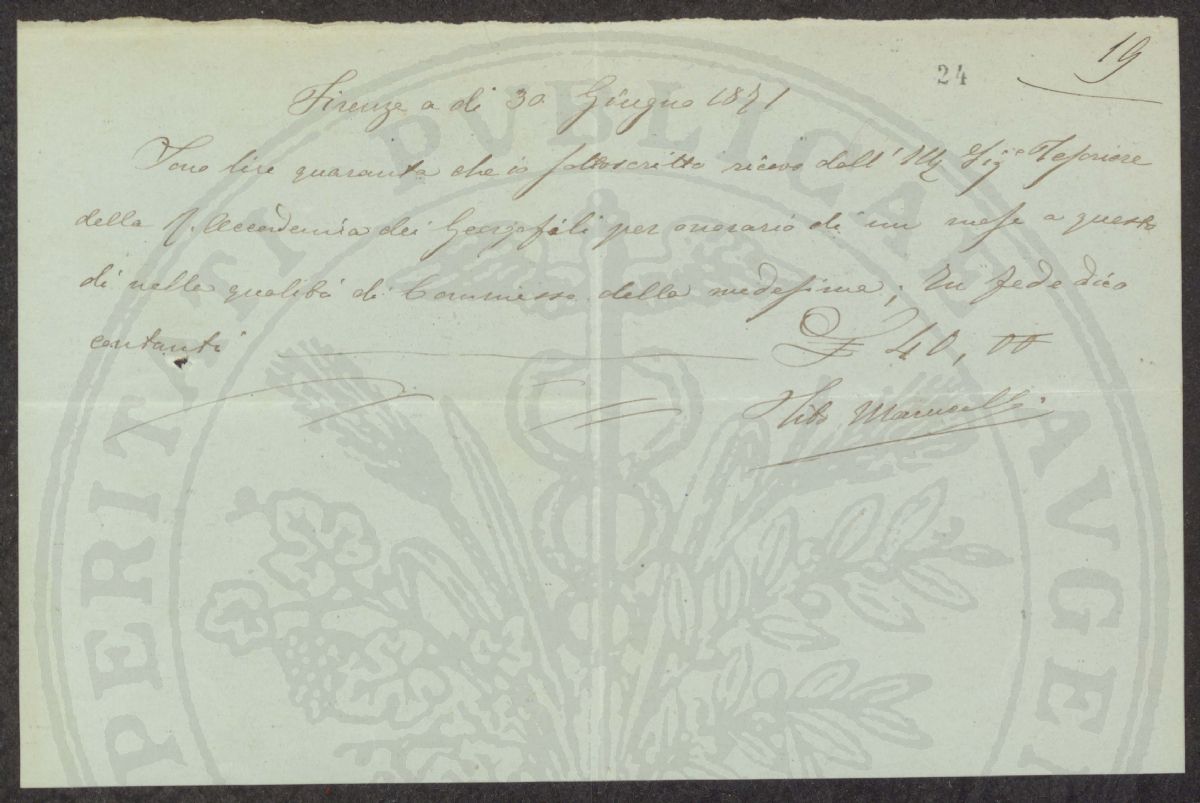 19
24
Firenze a di 30 Giugno 1871
Sono lire quaranta che io sottoscritto ricevo dall' Ill Sigre Tesoriere
della R. Accademia dei Georgofili per onorario di un mese a questo
di nella qualità di Commesso della medesima; In fede dico
contanti £ 40,00
Marucelli
PROSPERITATI PVBLICAE AVGE